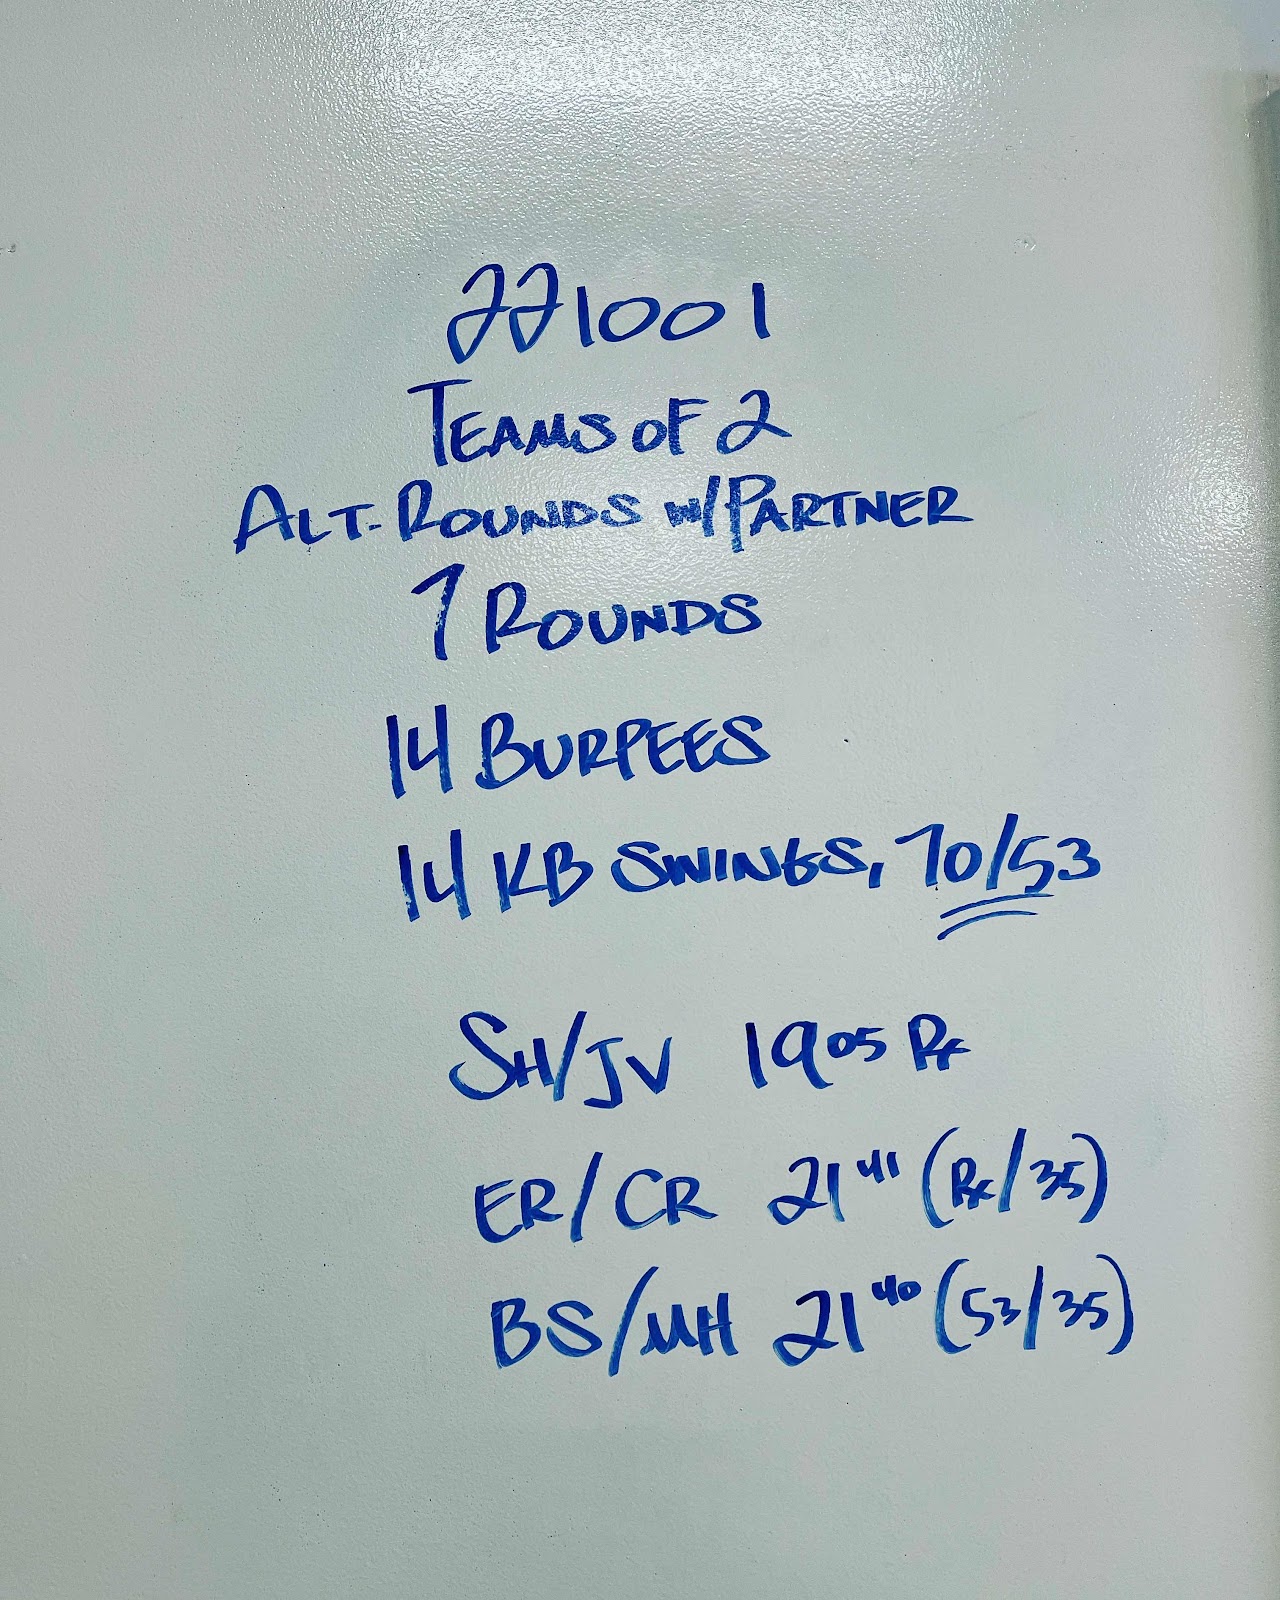 221001
TEAMS OF 2
ALT. ROUNDS W/PARTNER
7 ROUNDS
14 BURPEES
14 KB SWINGS, 70/53
SH/JV 1905 Rx
ER/CR 2141 (Rx/35)
BS/MH 2140 (53/35)